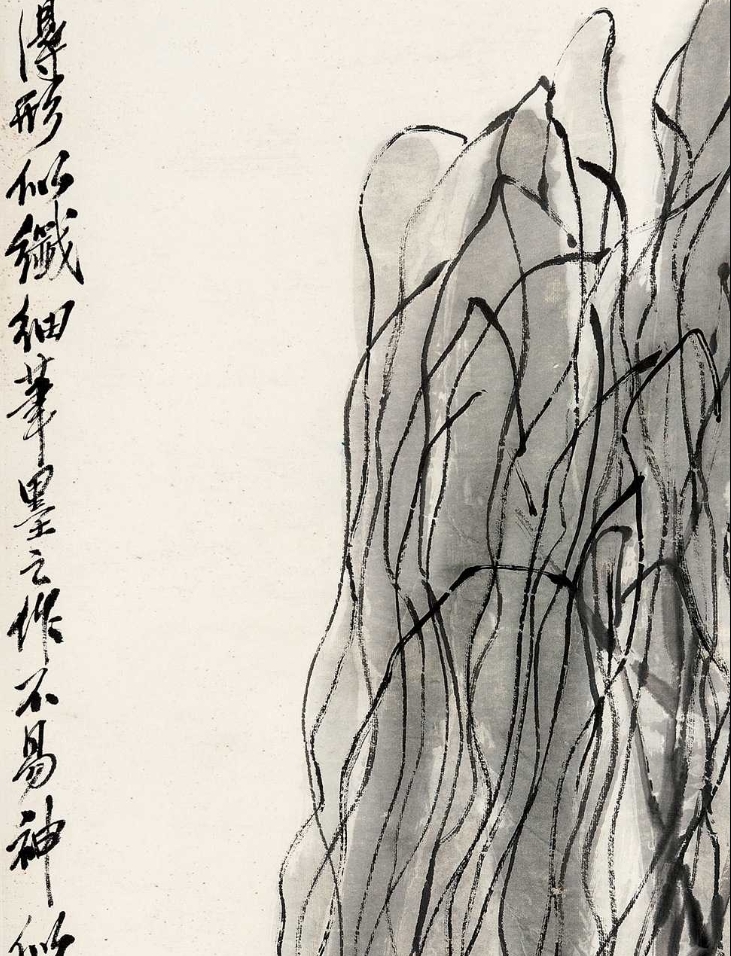 得形似纖細筆墨之作不易神似